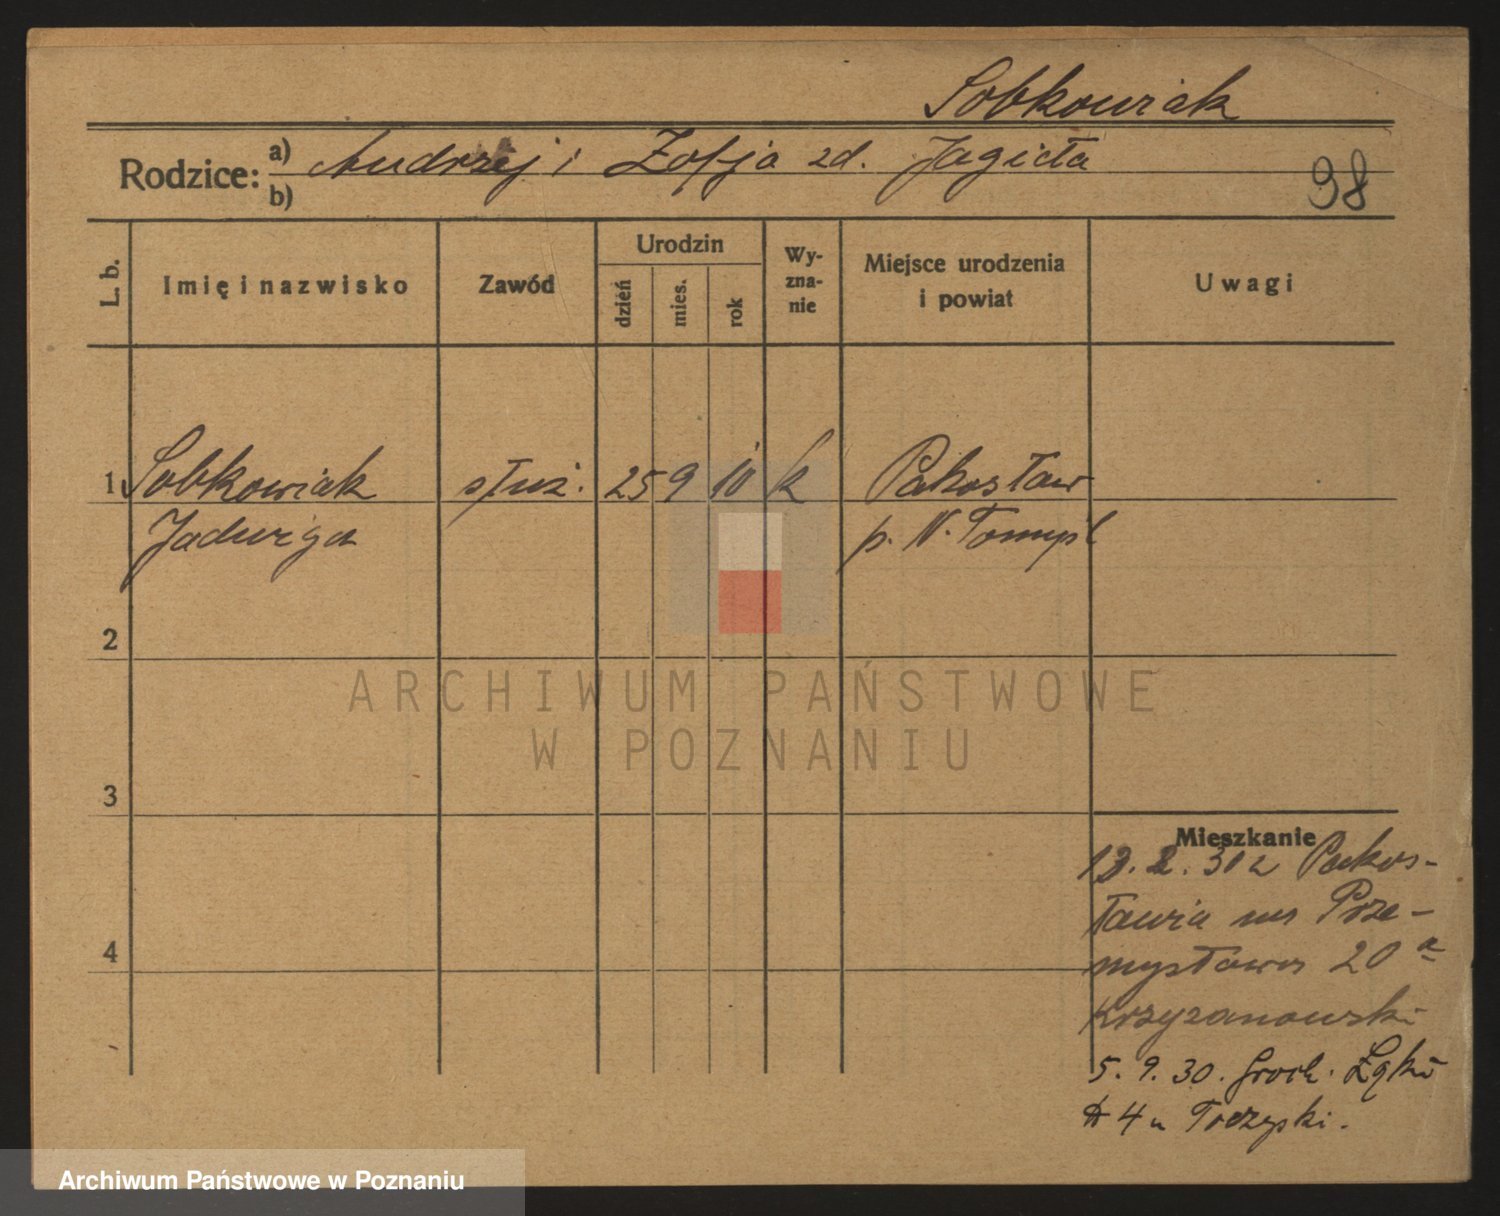 Sobkowiak
Rodzice: a) Andrzej i Zofja zd. Jagieła
b)
98
L. b.
Imię i nazwisko
Zawód
Urodzin
dzień
mies.
rok
Wy-
zna-
nie
Miejsce urodzenia
i powiat
Uwagi
1 Sobkowiak służ. 25 9 10 k Pakosław
Jadwiga p. N. Tomyśl
2
3
4
Mieszkanie
30 z Pakos-
ławia na Prze-
mysłowa 20 a
Krzyzanowski
5. 9. 30. Groch. Łąki
4 u
ARCHIWUM PAŃSTWOWE
W POZNANIU
Archiwum Państwowe w Poznaniu